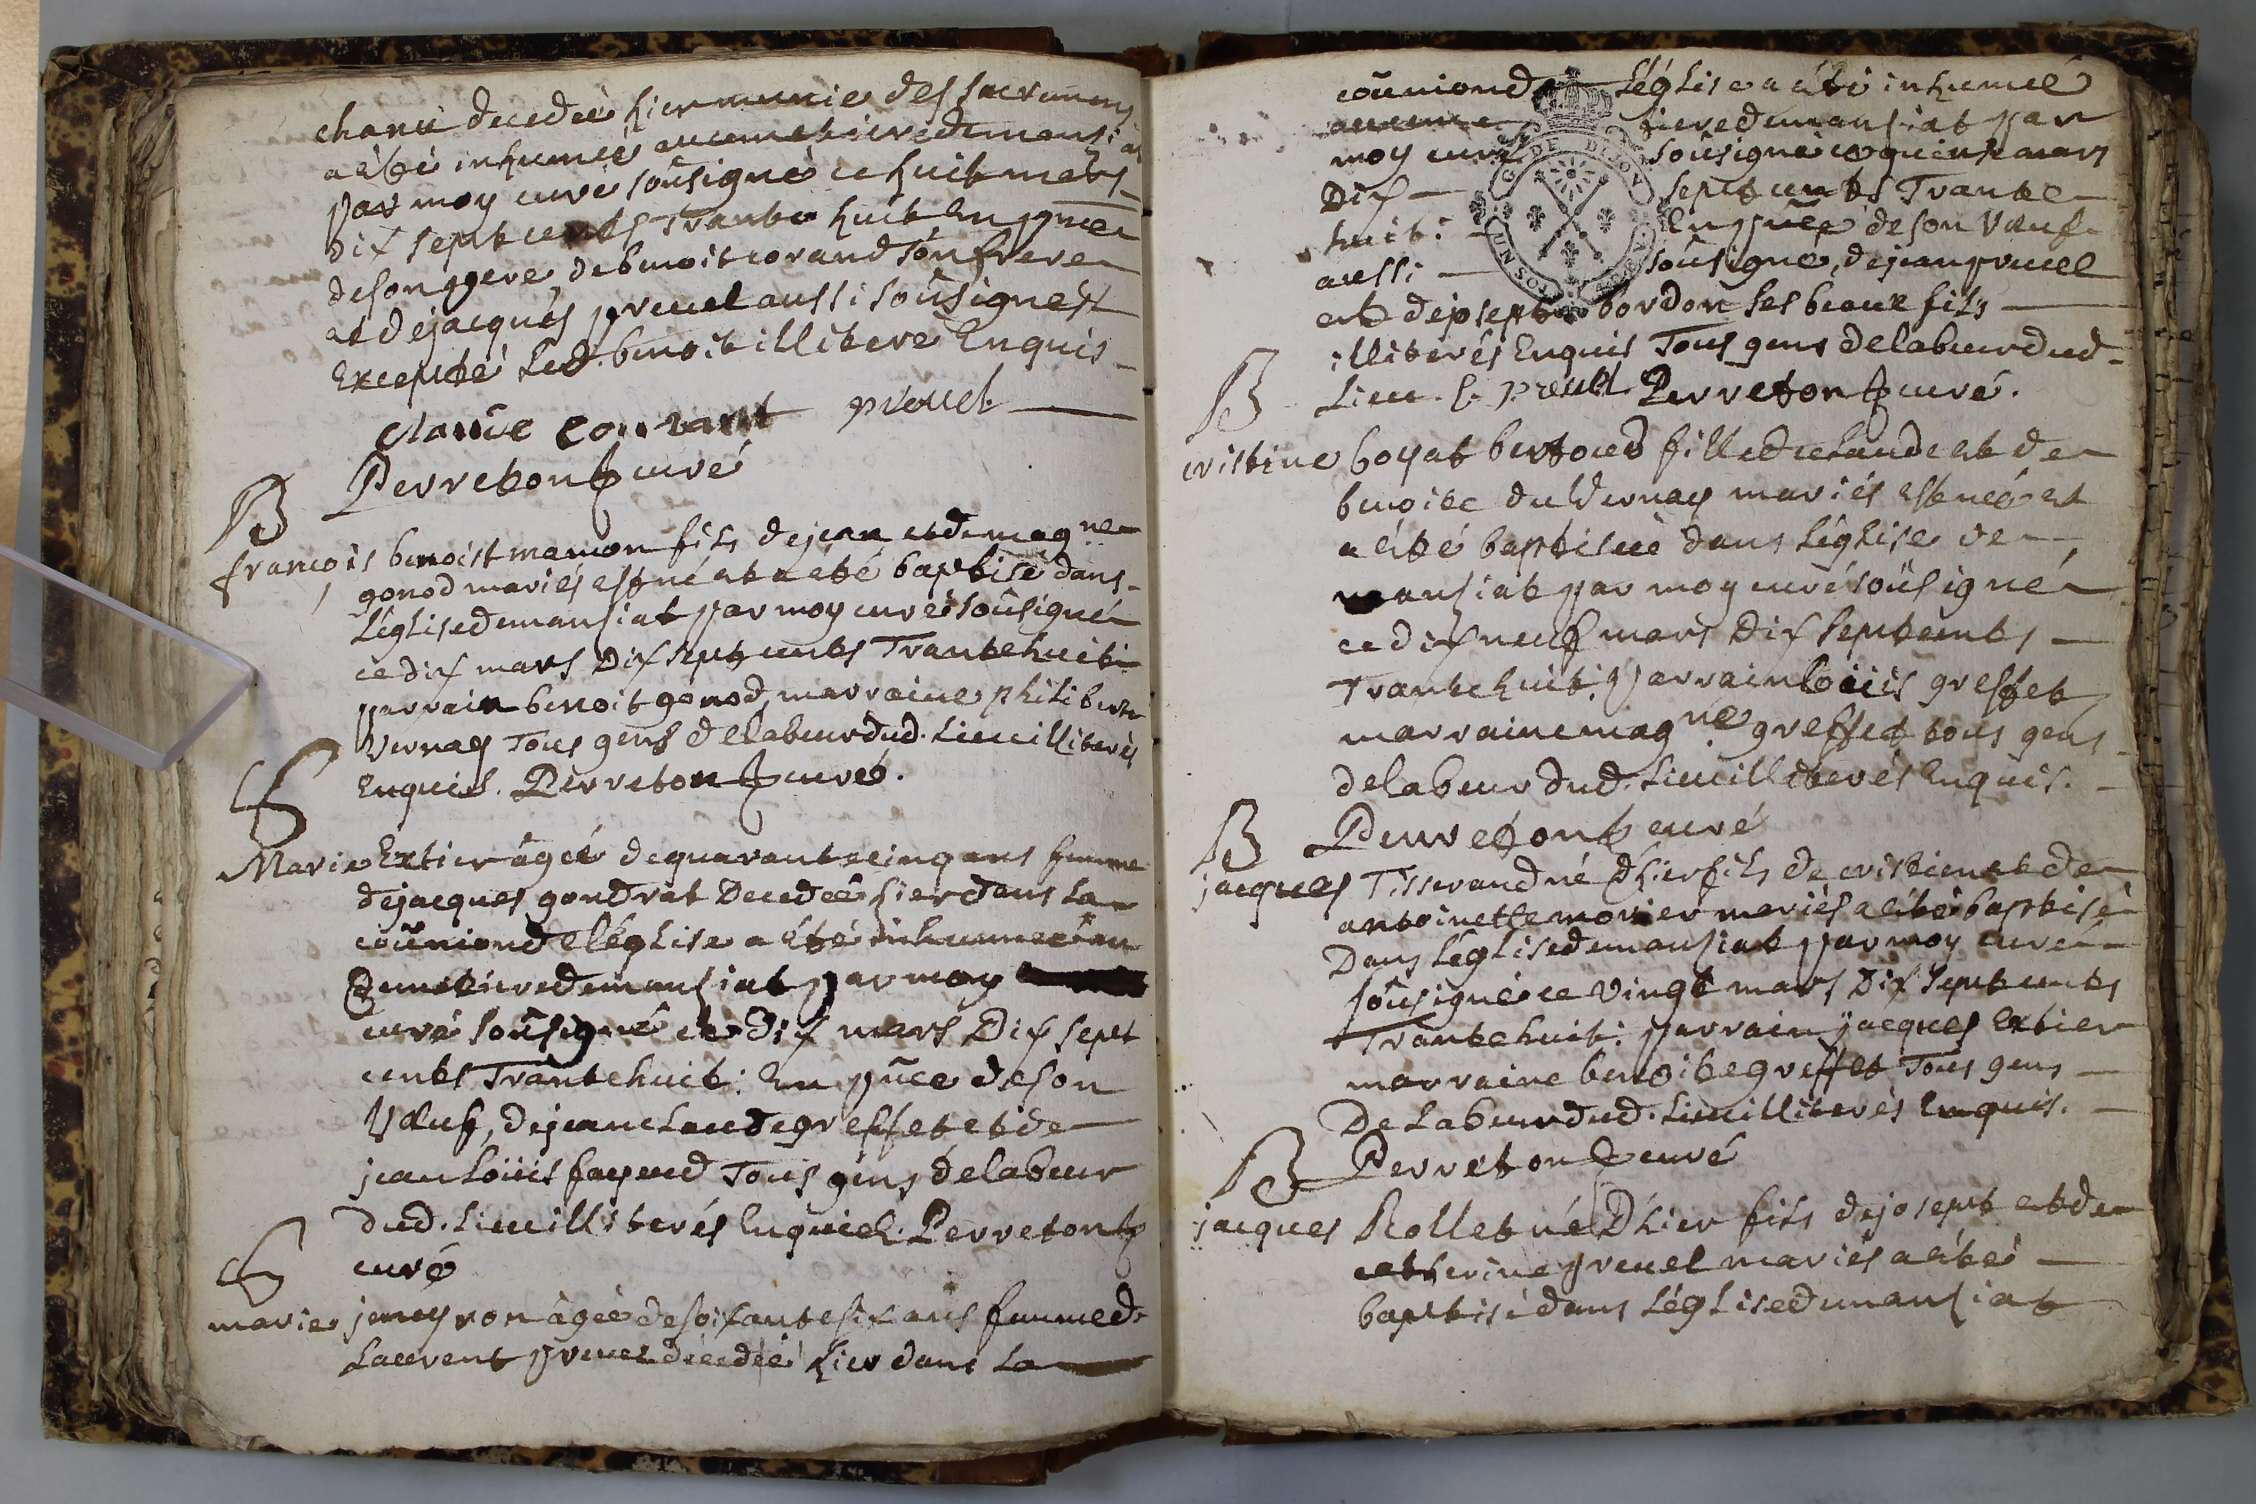 chanu decedeé hier munie des sacremens
a été inhumeé au cimetiere de mansiat
par moy curé soûsigné ce huit mars
dix sept cents Trante huit En pñce
de son pere, de benoit corand son frere
et de jacques preuel aussi soûsignés
Excepté led. benoit illitere Enquis
claude couvant preuel
Perreton curé
B
françois benoist mamon fils de jean et de magne
gonod mariés est né et a eté baptisé dans
Léglise de mansiat par moy curé soûsigné
ce dix mars Dix sept cents Trante huit
parrain benoit gonod, marraine philiberte
Vernay Tous gens de labeur dud. Lieu illiterés
Enquis. Perreton curé.
Marie Extier âgeé de quarante cinq ans femme
de jacques gondrat Decedeé hier dans La
coûnion de léglise a été inhumeé au
Cimetiere de mansiat par moy
curé soûsigné ce dix mars Dix sept
cents Trante huit: En pñce de son
Vœuf, de jean claude greffet et de
jean Loüis fayend Tous gens de labeur
dud. Lieu illiterés Enquis. Perreton
curé
marie jeneyron âgeé de soixante six ans femme de
Laurent preuel décedeé hier dans La
coûnion de Léglise a été inhumeé
au cimetiere de mansiat par
moy curé soûsigné ce quinze mars
Dix sept cents Trante
huit: En pñce de son Vœuf
aussi soûsigné, de jean preuel
et de joseph bordon ses beaux fils
illiterés Enquis Tous gens de labeur dud.
Lieu. L. preuel Perreton curé.
G. DE DIJON
UN SOL
B
cristine boyat bertoud fille de claude et de
benoite du Vernay mariés est neé et
a été baptiseé dans Léglise de
mansiat par moy curé soûsigné
ce dix neuf mars Dix sept cents
Trante huit: parrain Loüis greffet
marraine magne greffet tous gens
de labeur dud. Lieu illiterés Enquis.
B
Perreton curé
jacques Tisserand né d'hier fils de cristien et de
antoinette morier mariés a été baptisé
Dans Léglise de mansiat par moy curé
soûsigné ce Vingt mars Dix sept cents
Trante huit: parrain jacques Extier
marraine benoite greffet Tous gens
De Labeur dud. Lieu illiterés Enquis.
B
Perreton curé
jacques Rollet né D'hier fils de joseph et de
catherine preuel mariés a été
baptisé dans Léglise de mansiat